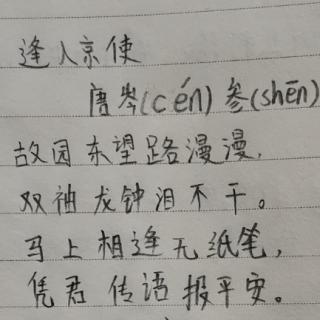 逢入京使
唐岑(cén)参(shēn)
故园东望路漫漫,
双袖龙钟泪不干。
马上相逢无纸笔,
凭君传语报平安。